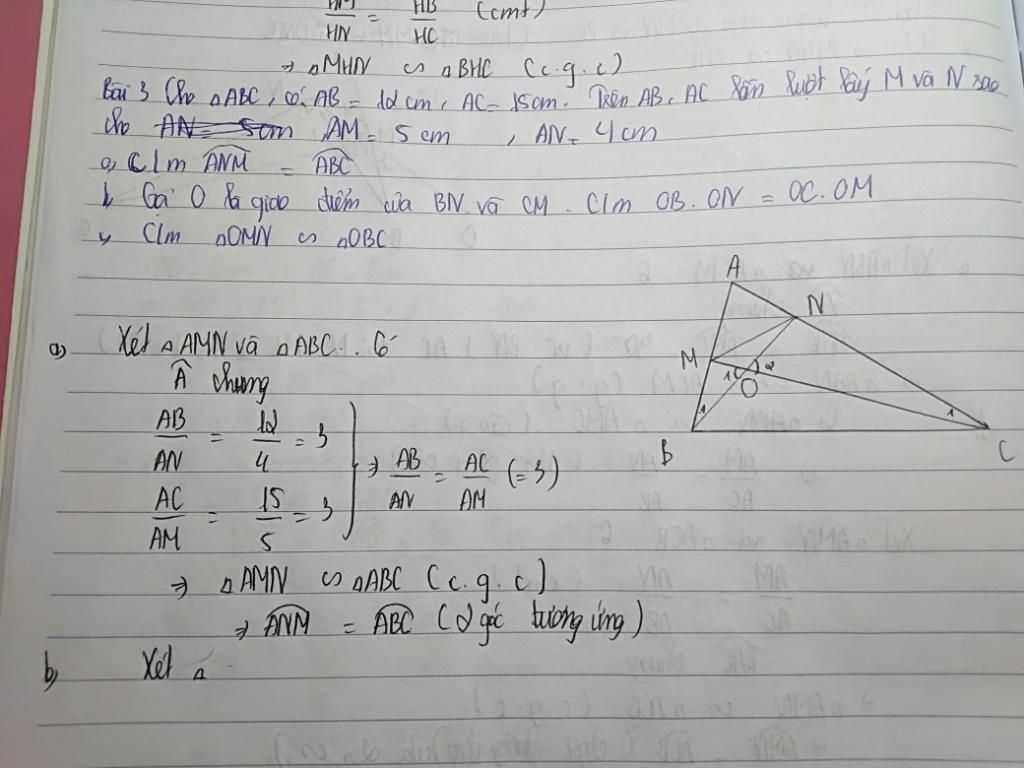 HM/HN = HB/HC (cmt)
⇒ △MHN ∽ △BHC (c.g.c)
Bài 3 Cho △ABC, có AB = 12 cm, AC = 15 cm. Trên AB, AC lần lượt lấy M và N sao
cho AN = 5cm AM = 5 cm , AN = 4 cm
a, C/m ANM = ABC
b, Gọi O là giao điểm của BN và CM. C/m OB. ON = OC. OM
c, C/m △OMN ∽ △OBC
a) Xét △AMN và △ABC. Có
Â chung
AB/AN = 12/4 = 3
AC/AM = 15/5 = 3
⇒ AB/AN = AC/AM (=3)
⇒ △AMN ∽ △ABC (c.g.c)
⇒ ANM = ABC (2 góc tương ứng)
b) Xét △
A
N
M
1
2
O
1
1
B
C